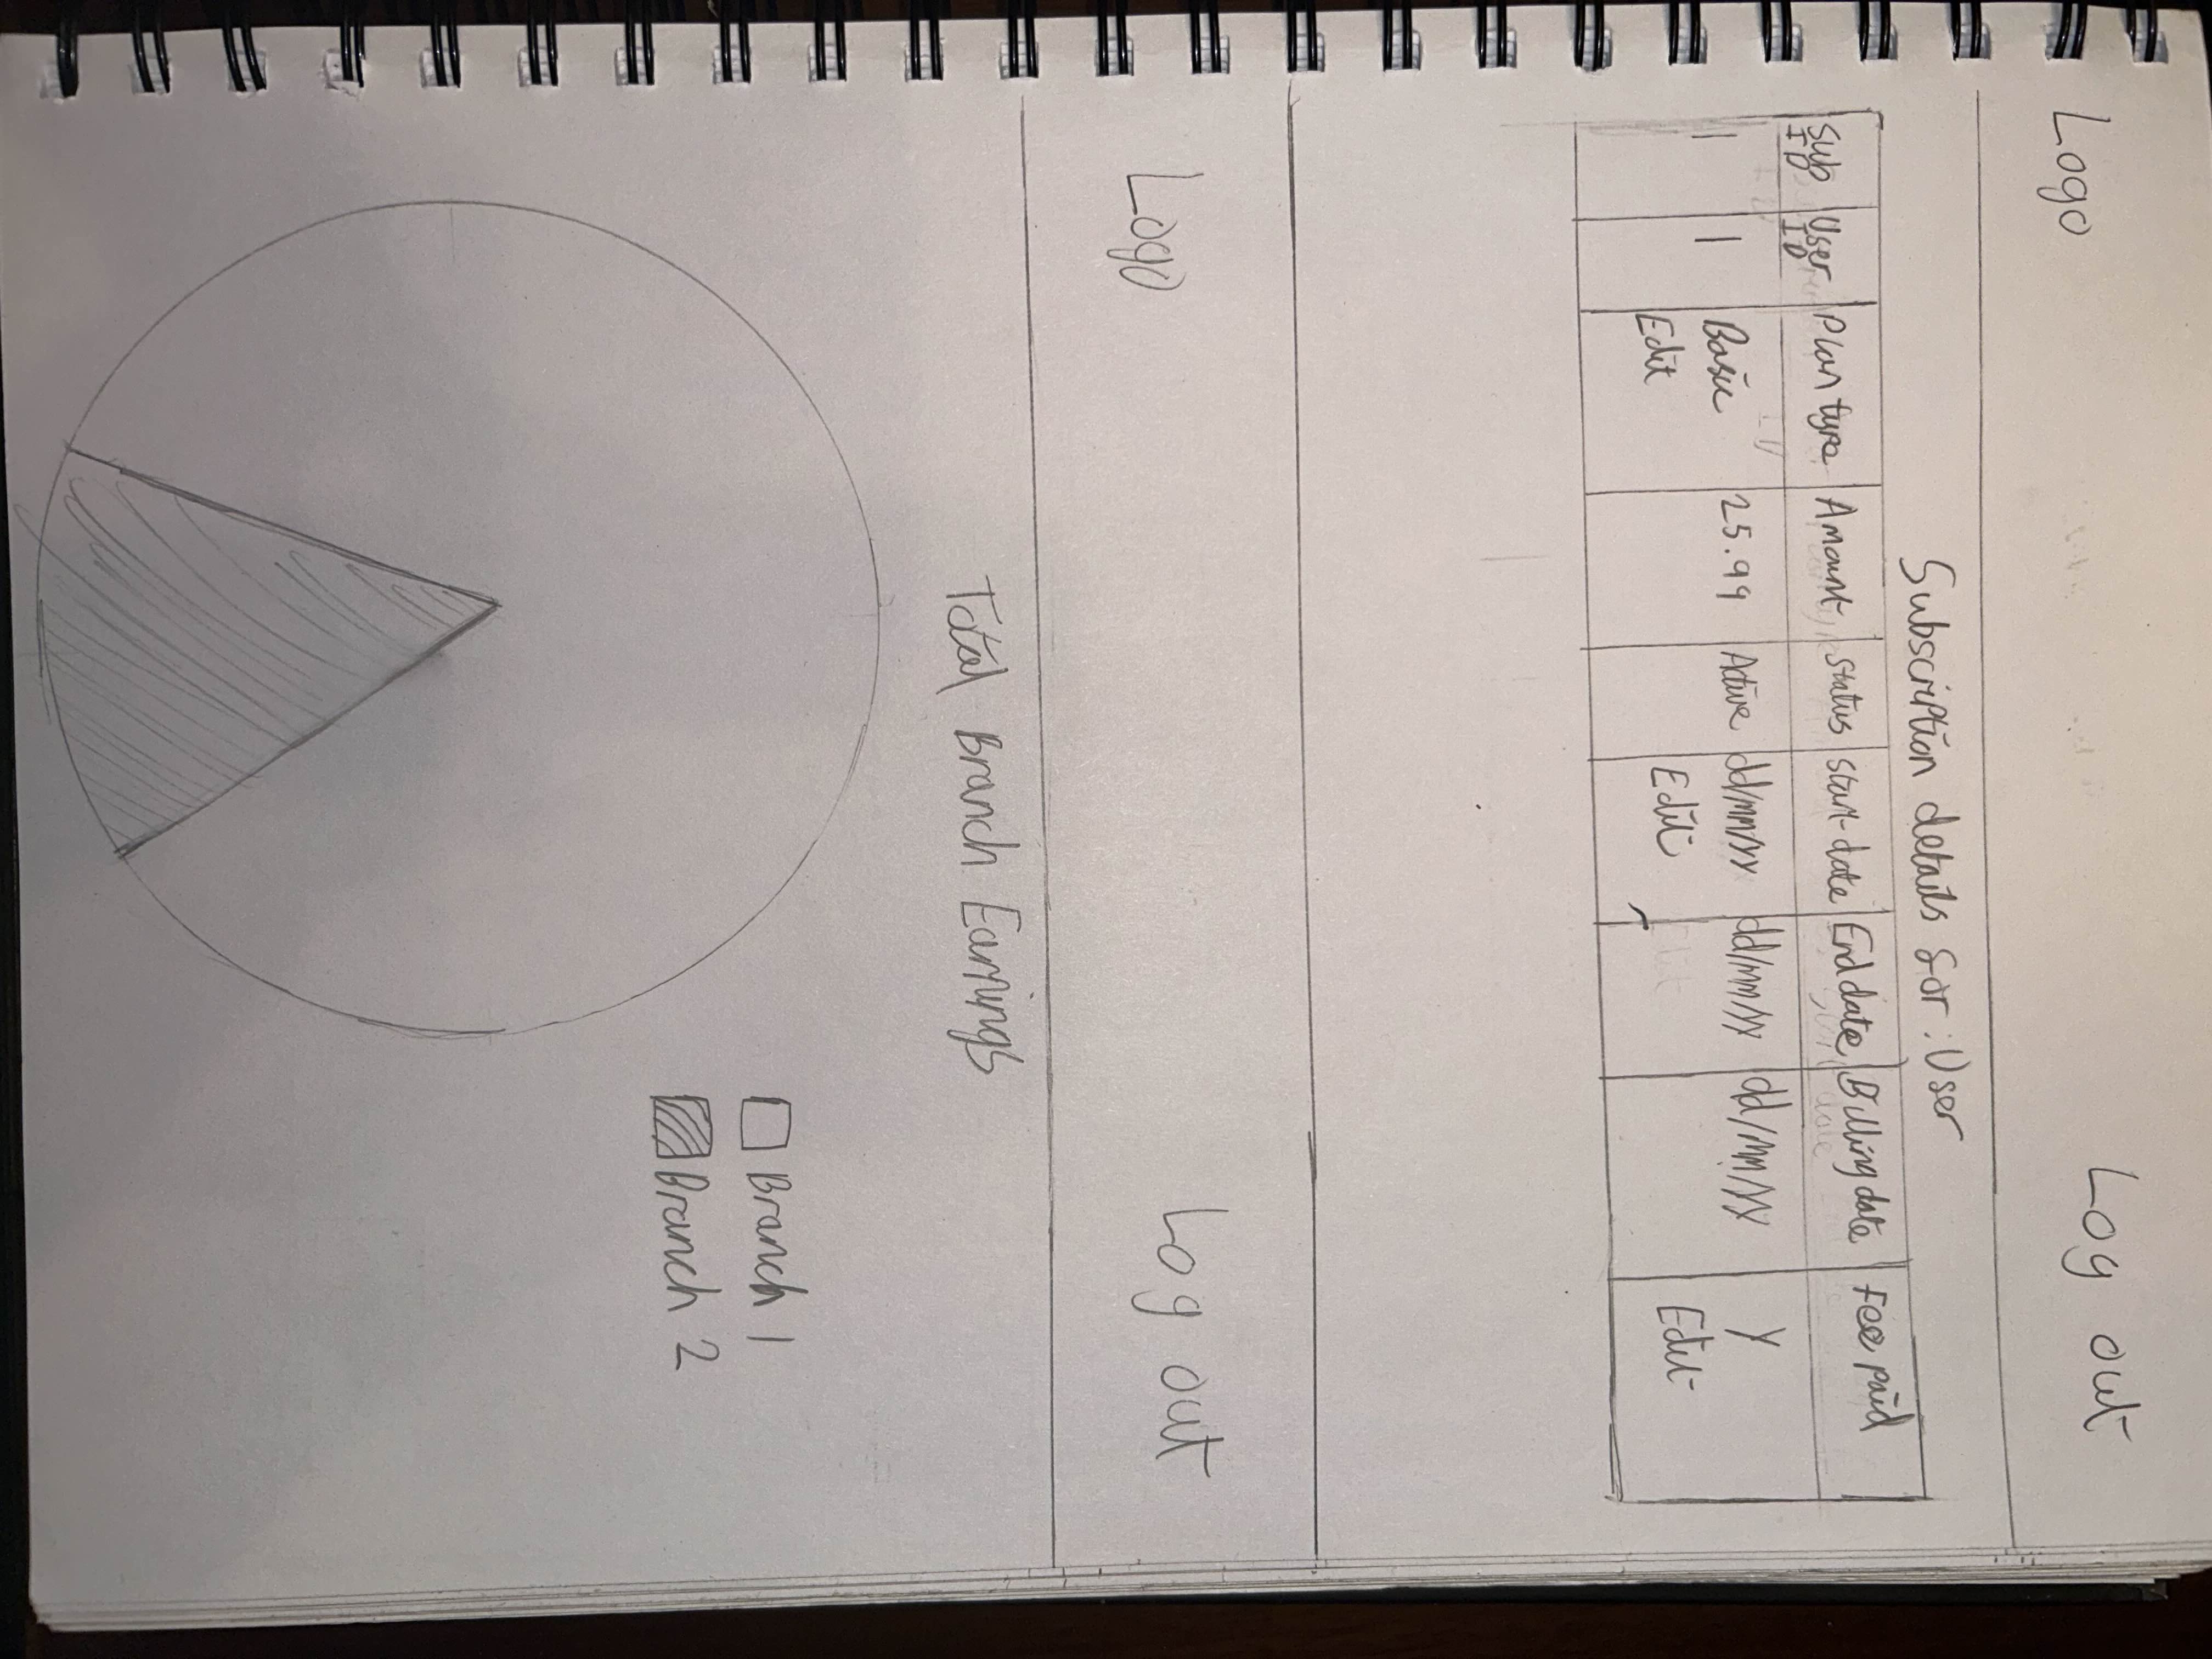 Logo Log out
Subscription details for : User
Sub ID User ID Plan type Amount Status Start date End date Billing date Fee paid
1 1 Basic 25.99 Active dd/mm/yy dd/mm/yy dd/mm/yy Y
Edit Edit Edit
Logo Log out
Total Branch Earnings
Branch 1
Branch 2